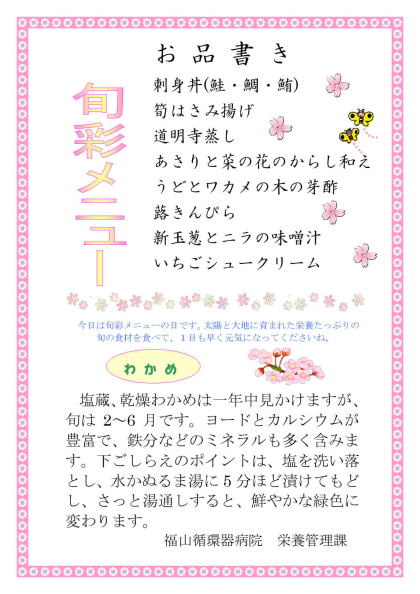 お品書き
旬彩メニュー
刺身丼(鮭・鯛・鮪)
筍はさみ揚げ
道明寺蒸し
あさりと菜の花のからし和え
うどとワカメの木の芽酢
蕗きんぴら
新玉葱とニラの味噌汁
いちごシュークリーム
今日は旬彩メニューの日です。太陽と大地に育まれた栄養たっぷりの
旬の食材を食べて、1日も早く元気になってくださいね。
わかめ
塩蔵、乾燥わかめは一年中見かけますが、
旬は 2〜6 月です。ヨードとカルシウムが
豊富で、鉄分などのミネラルも多く含みま
す。下ごしらえのポイントは、塩を洗い落
とし、水かぬるま湯に 5 分ほど漬けてもど
し、さっと湯通しすると、鮮やかな緑色に
変わります。
福山循環器病院 栄養管理課